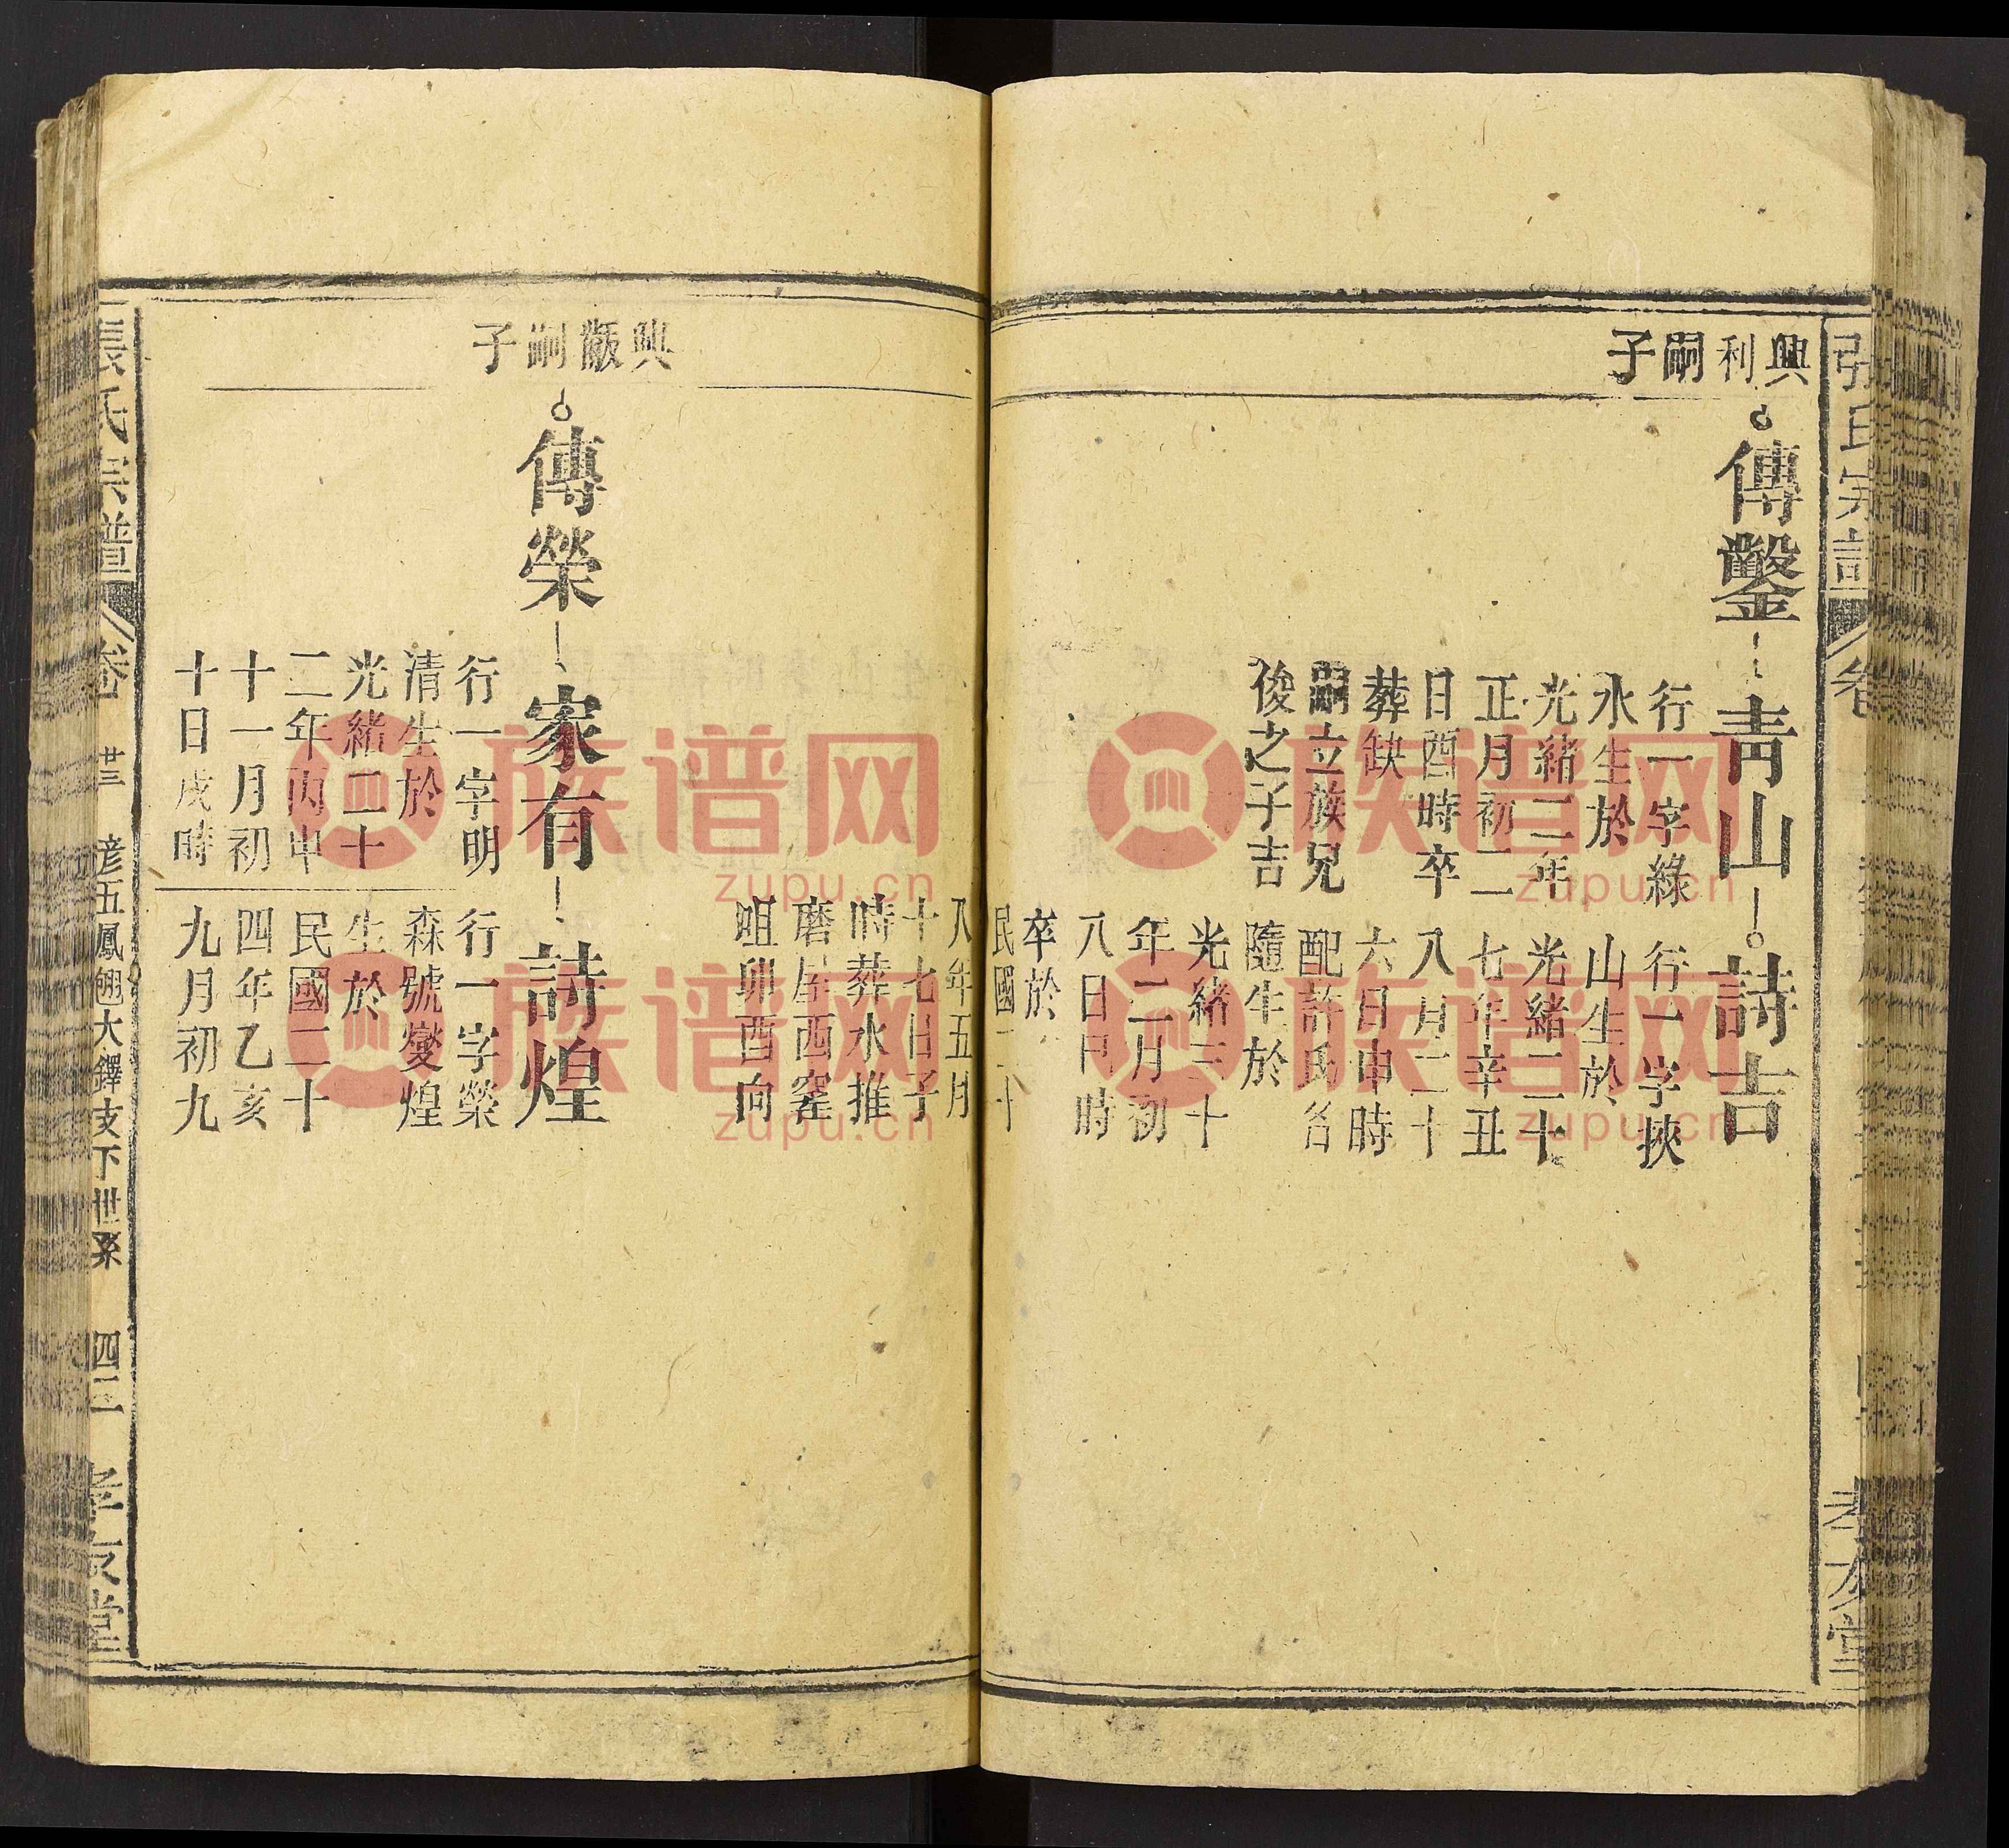 張氏宗譜
卷
孝友堂
興利嗣子
傳鑿
青山
行一字綠
水生於
光緒二年
正月初二
日酉時卒
葬缺
嗣立族兄
俊之子吉
詩吉
行一字挾
山生於
光緒二十
七年辛丑
八月二十
六日申時
配許氏名
隨生於
光緒三十
年二月初
八日 時
卒於
民國二十
八年五月
十七日子
時葬水推
磨屋西窪
咀卯酉向
興 嗣子
傳榮
家有
行一字明
清生於
光緒二十
二年丙申
十一月初
十日戌時
詩煌
行一字榮
森號燮煌
生於
民國二十
四年乙亥
九月初九
張氏宗譜
卷 廿三 彦五鳳翹大鐸支下世系 四三 孝友堂
族谱网
zupu.cn
族谱网
zupu.cn
族谱网
zupu.cn
族谱网
zupu.cn